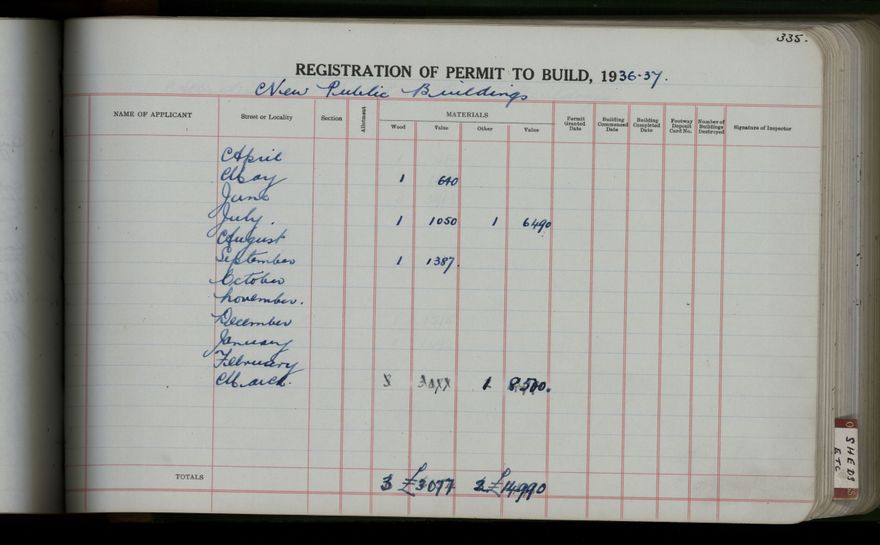 335.
REGISTRATION OF PERMIT TO BUILD, 1936-37.
New Public Buildings
NAME OF APPLICANT Street or Locality Section Allotment MATERIALS Wood Value Other Value Permit Granted Date Building Commenced Date Building Completed Date Footway Deposit Card No. Number of Buildings Destroyed Signature of Inspector
April
May 1 640
June
July. 1 1050 1 6490
August
September 1 1387.
October
November.
December
January
February
March. 1 8500.
TOTALS 3 £3077 2 £14990
SHEDS
ETC